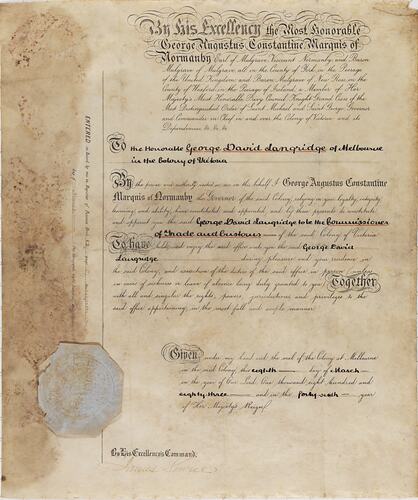 By His Excellency the Most Honorable
George Augustus Constantine Marquis of
Normanby Earl of Mulgrave, Viscount Normanby and Baron
Mulgrave of Mulgrave all in the County of York in the Peerage
of the United Kingdom; and Baron Mulgrave of New Ross in the
County of Wexford in the Peerage of Ireland; a Member of Her
Majesty's Most Honorable Privy Council, Knight Grand Cross of the
Most Distinguished Order of Saint Michael and Saint George Governor
and Commander in Chief in and over the Colony of Victoria and its
Dependencies &c &c &c
To the Honorable George David Langridge of Melbourne
in the Colony of Victoria
By the power and authority vested in me in this behalf I George Augustus Constantine
Marquis of Normanby the Governor of the said Colony, relying on your loyalty, integrity
learning, and ability, have constituted and appointed, and by these presents do constitute
and appoint you the said George David Langridge to be the Commissioner
of Trade and Customs of the said Colony of Victoria
To have hold and enjoy the said office unto you the said George David
Langridge during pleasure and your residence in
the said Colony, and execution of the duties of the said office in person except
in case of sickness or leave of absence being duly granted to you Together
with all and singular the rights, powers, jurisdictions and privileges to the
said office appertaining, in the most full and ample manner.
Given under my hand and the seal of the Colony at Melbourne
in the said Colony, this eighth day of March
in the year of Our Lord One thousand eight hundred and
eighty three and in the forty sixth year
of Her Majesty's Reign
By His Excellency's Command,
ENTERED on Record by me in